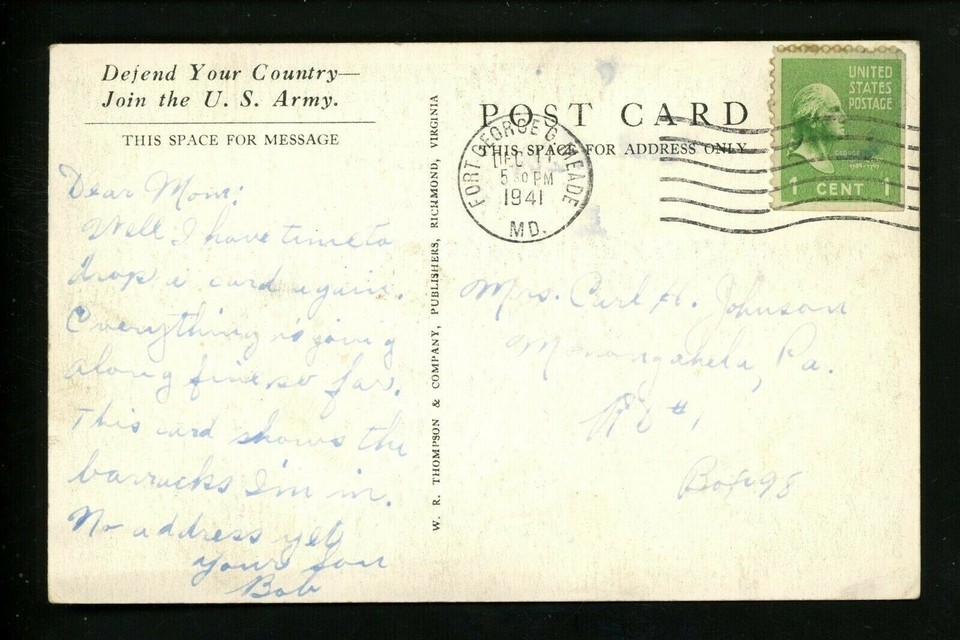 Defend Your Country—
Join the U. S. Army.
THIS SPACE FOR MESSAGE
Dear Mom:
Well I have time to
drop a card again.
Everything is going
along fine so far.
This card shows the
barracks I'm in.
No address yet
your son
Bob
W. R. THOMPSON & COMPANY, PUBLISHERS, RICHMOND, VIRGINIA
POST CARD
THIS SPACE FOR ADDRESS ONLY
FORT GEORGE G. MEADE
DEC 11
5 30 PM
1941
MD.
UNITED
STATES
POSTAGE
1 CENT 1
Mrs. Carl H. Johnson
Monongahela, Pa.
RD #1
Box 98